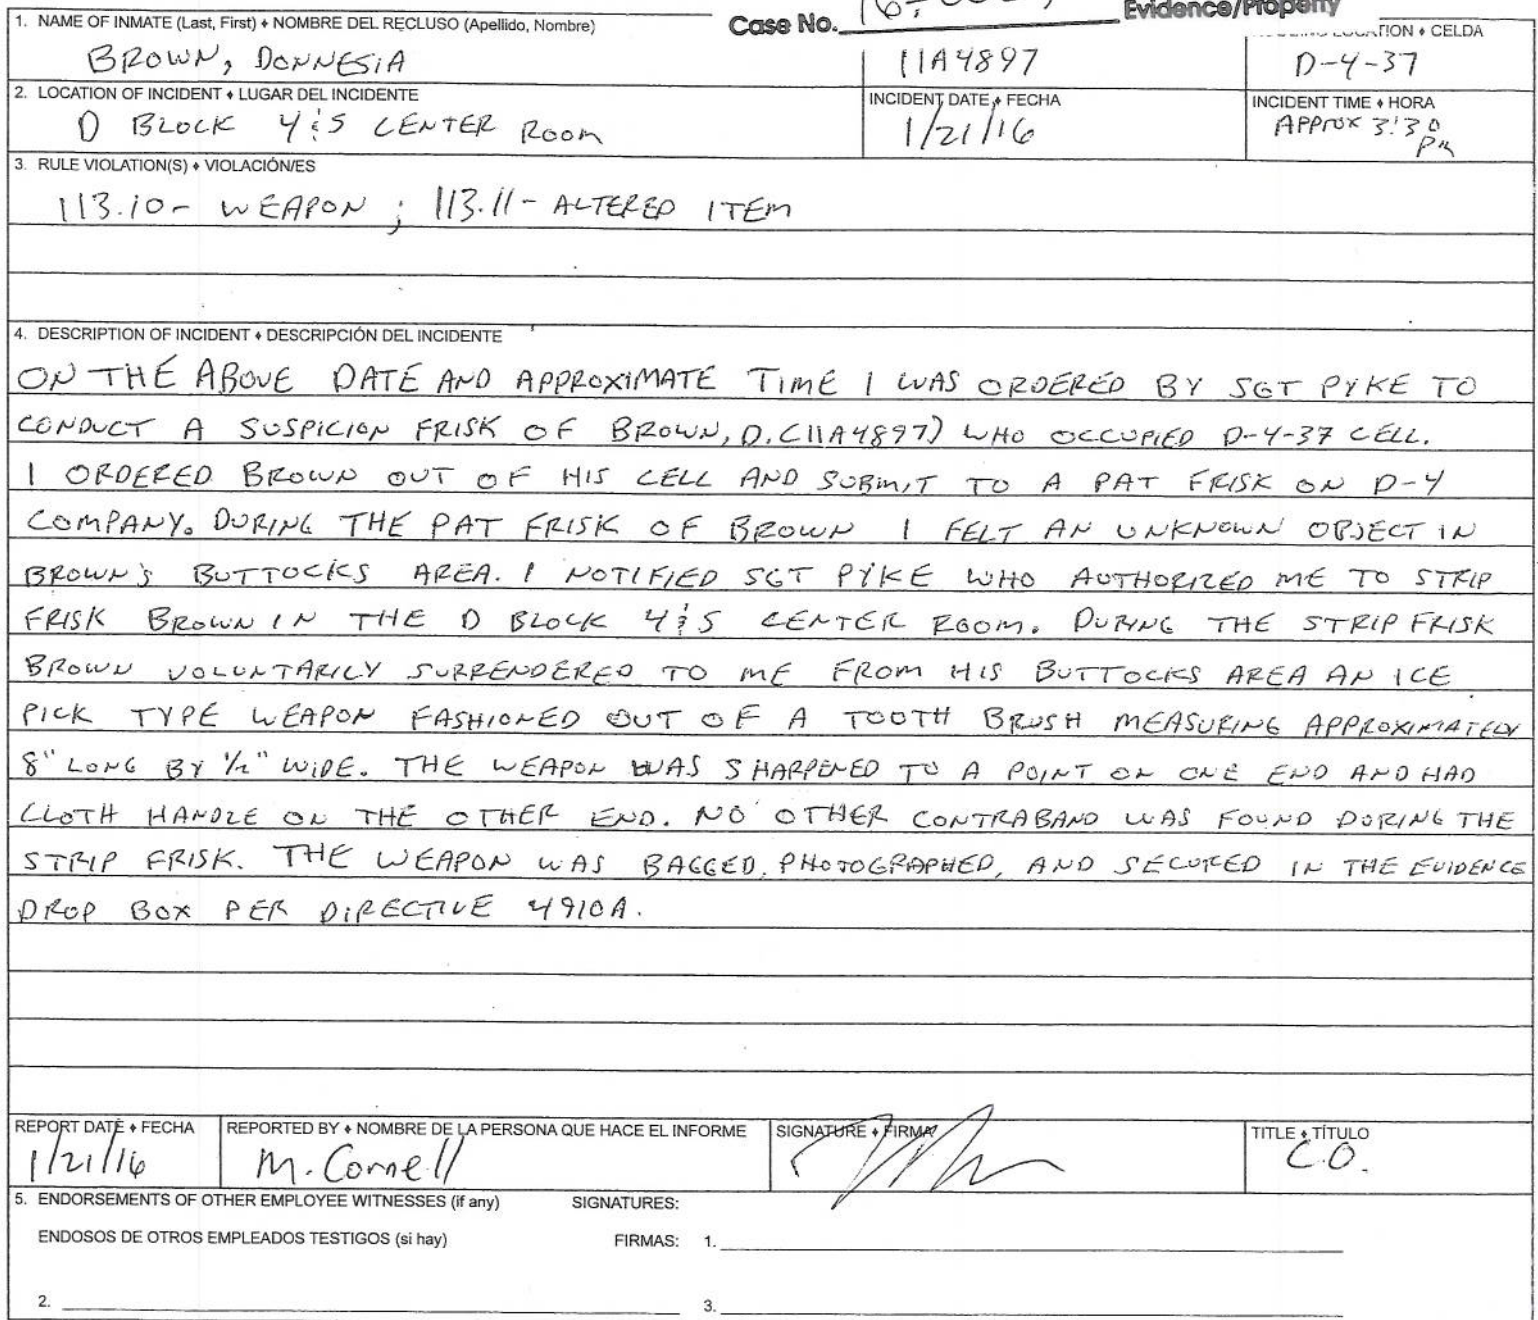 Case No. Evidence/Property
1. NAME OF INMATE (Last, First) ♦ NOMBRE DEL RECLUSO (Apellido, Nombre)
CELDA
BROWN, DONNESIA 11A4897 D-4-37
2. LOCATION OF INCIDENT ♦ LUGAR DEL INCIDENTE INCIDENT DATE ♦ FECHA INCIDENT TIME ♦ HORA
D BLOCK 4&5 CENTER ROOM 1/21/16 APPROX 3:30 PM
3. RULE VIOLATION(S) ♦ VIOLACIÓN/ES
113.10- WEAPON ; 113.11- ALTERED ITEM
4. DESCRIPTION OF INCIDENT ♦ DESCRIPCIÓN DEL INCIDENTE
ON THE ABOVE DATE AND APPROXIMATE TIME I WAS ORDERED BY SGT PYKE TO
CONDUCT A SUSPICION FRISK OF BROWN, D. (11A4897) WHO OCCUPIED D-4-37 CELL.
I ORDERED BROWN OUT OF HIS CELL AND SUBMIT TO A PAT FRISK ON D-4
COMPANY. DURING THE PAT FRISK OF BROWN I FELT AN UNKNOWN OBJECT IN
BROWN'S BUTTOCKS AREA. I NOTIFIED SGT PYKE WHO AUTHORIZED ME TO STRIP
FRISK BROWN IN THE D BLOCK 4&5 CENTER ROOM. DURING THE STRIP FRISK
BROWN VOLUNTARILY SURRENDERED TO ME FROM HIS BUTTOCKS AREA AN ICE
PICK TYPE WEAPON FASHIONED OUT OF A TOOTH BRUSH MEASURING APPROXIMATELY
8" LONG BY 1/2" WIDE. THE WEAPON WAS SHARPENED TO A POINT ON ONE END AND HAD
CLOTH HANDLE ON THE OTHER END. NO OTHER CONTRABAND WAS FOUND DURING THE
STRIP FRISK. THE WEAPON WAS BAGGED, PHOTOGRAPHED, AND SECURED IN THE EVIDENCE
DROP BOX PER DIRECTIVE 4910A.
REPORT DATE ♦ FECHA REPORTED BY ♦ NOMBRE DE LA PERSONA QUE HACE EL INFORME SIGNATURE ♦ FIRMA TITLE ♦ TÍTULO
1/21/16 M. Cornell C.O.
5. ENDORSEMENTS OF OTHER EMPLOYEE WITNESSES (if any) SIGNATURES:
ENDOSOS DE OTROS EMPLEADOS TESTIGOS (si hay) FIRMAS: 1.
2. 3.